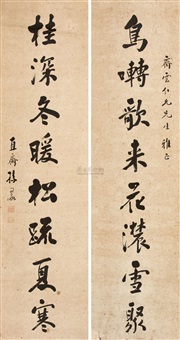 齋雲仁兄先生雅正
鳥囀歌来花濃雪聚
桂深冬暖松疏夏寒
直齋孫